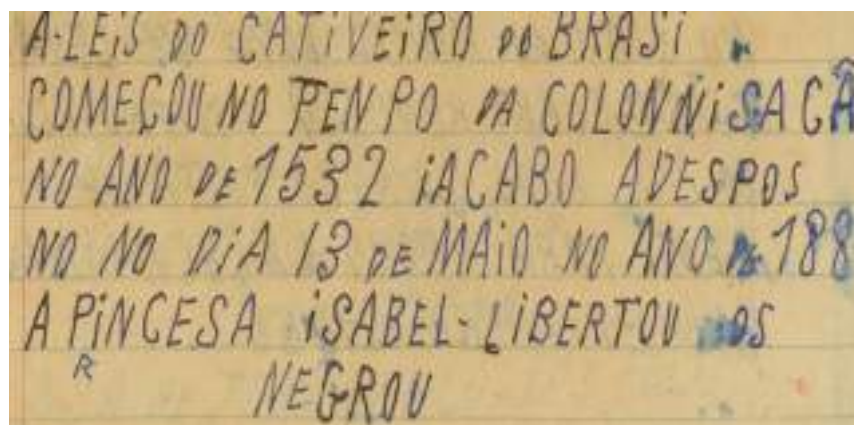 A-LEiS DO CATiVEiRO DO BRASi
COMEÇOU NO PENPO DA COLONNiSACÂ
NO ANO DE 1532 iACABO ADESPOS
NO NO DiA 13 DE MAiO NO ANO DE 188
A PRiNCESA iSABEL-LiBERTOU OS
NEGROU